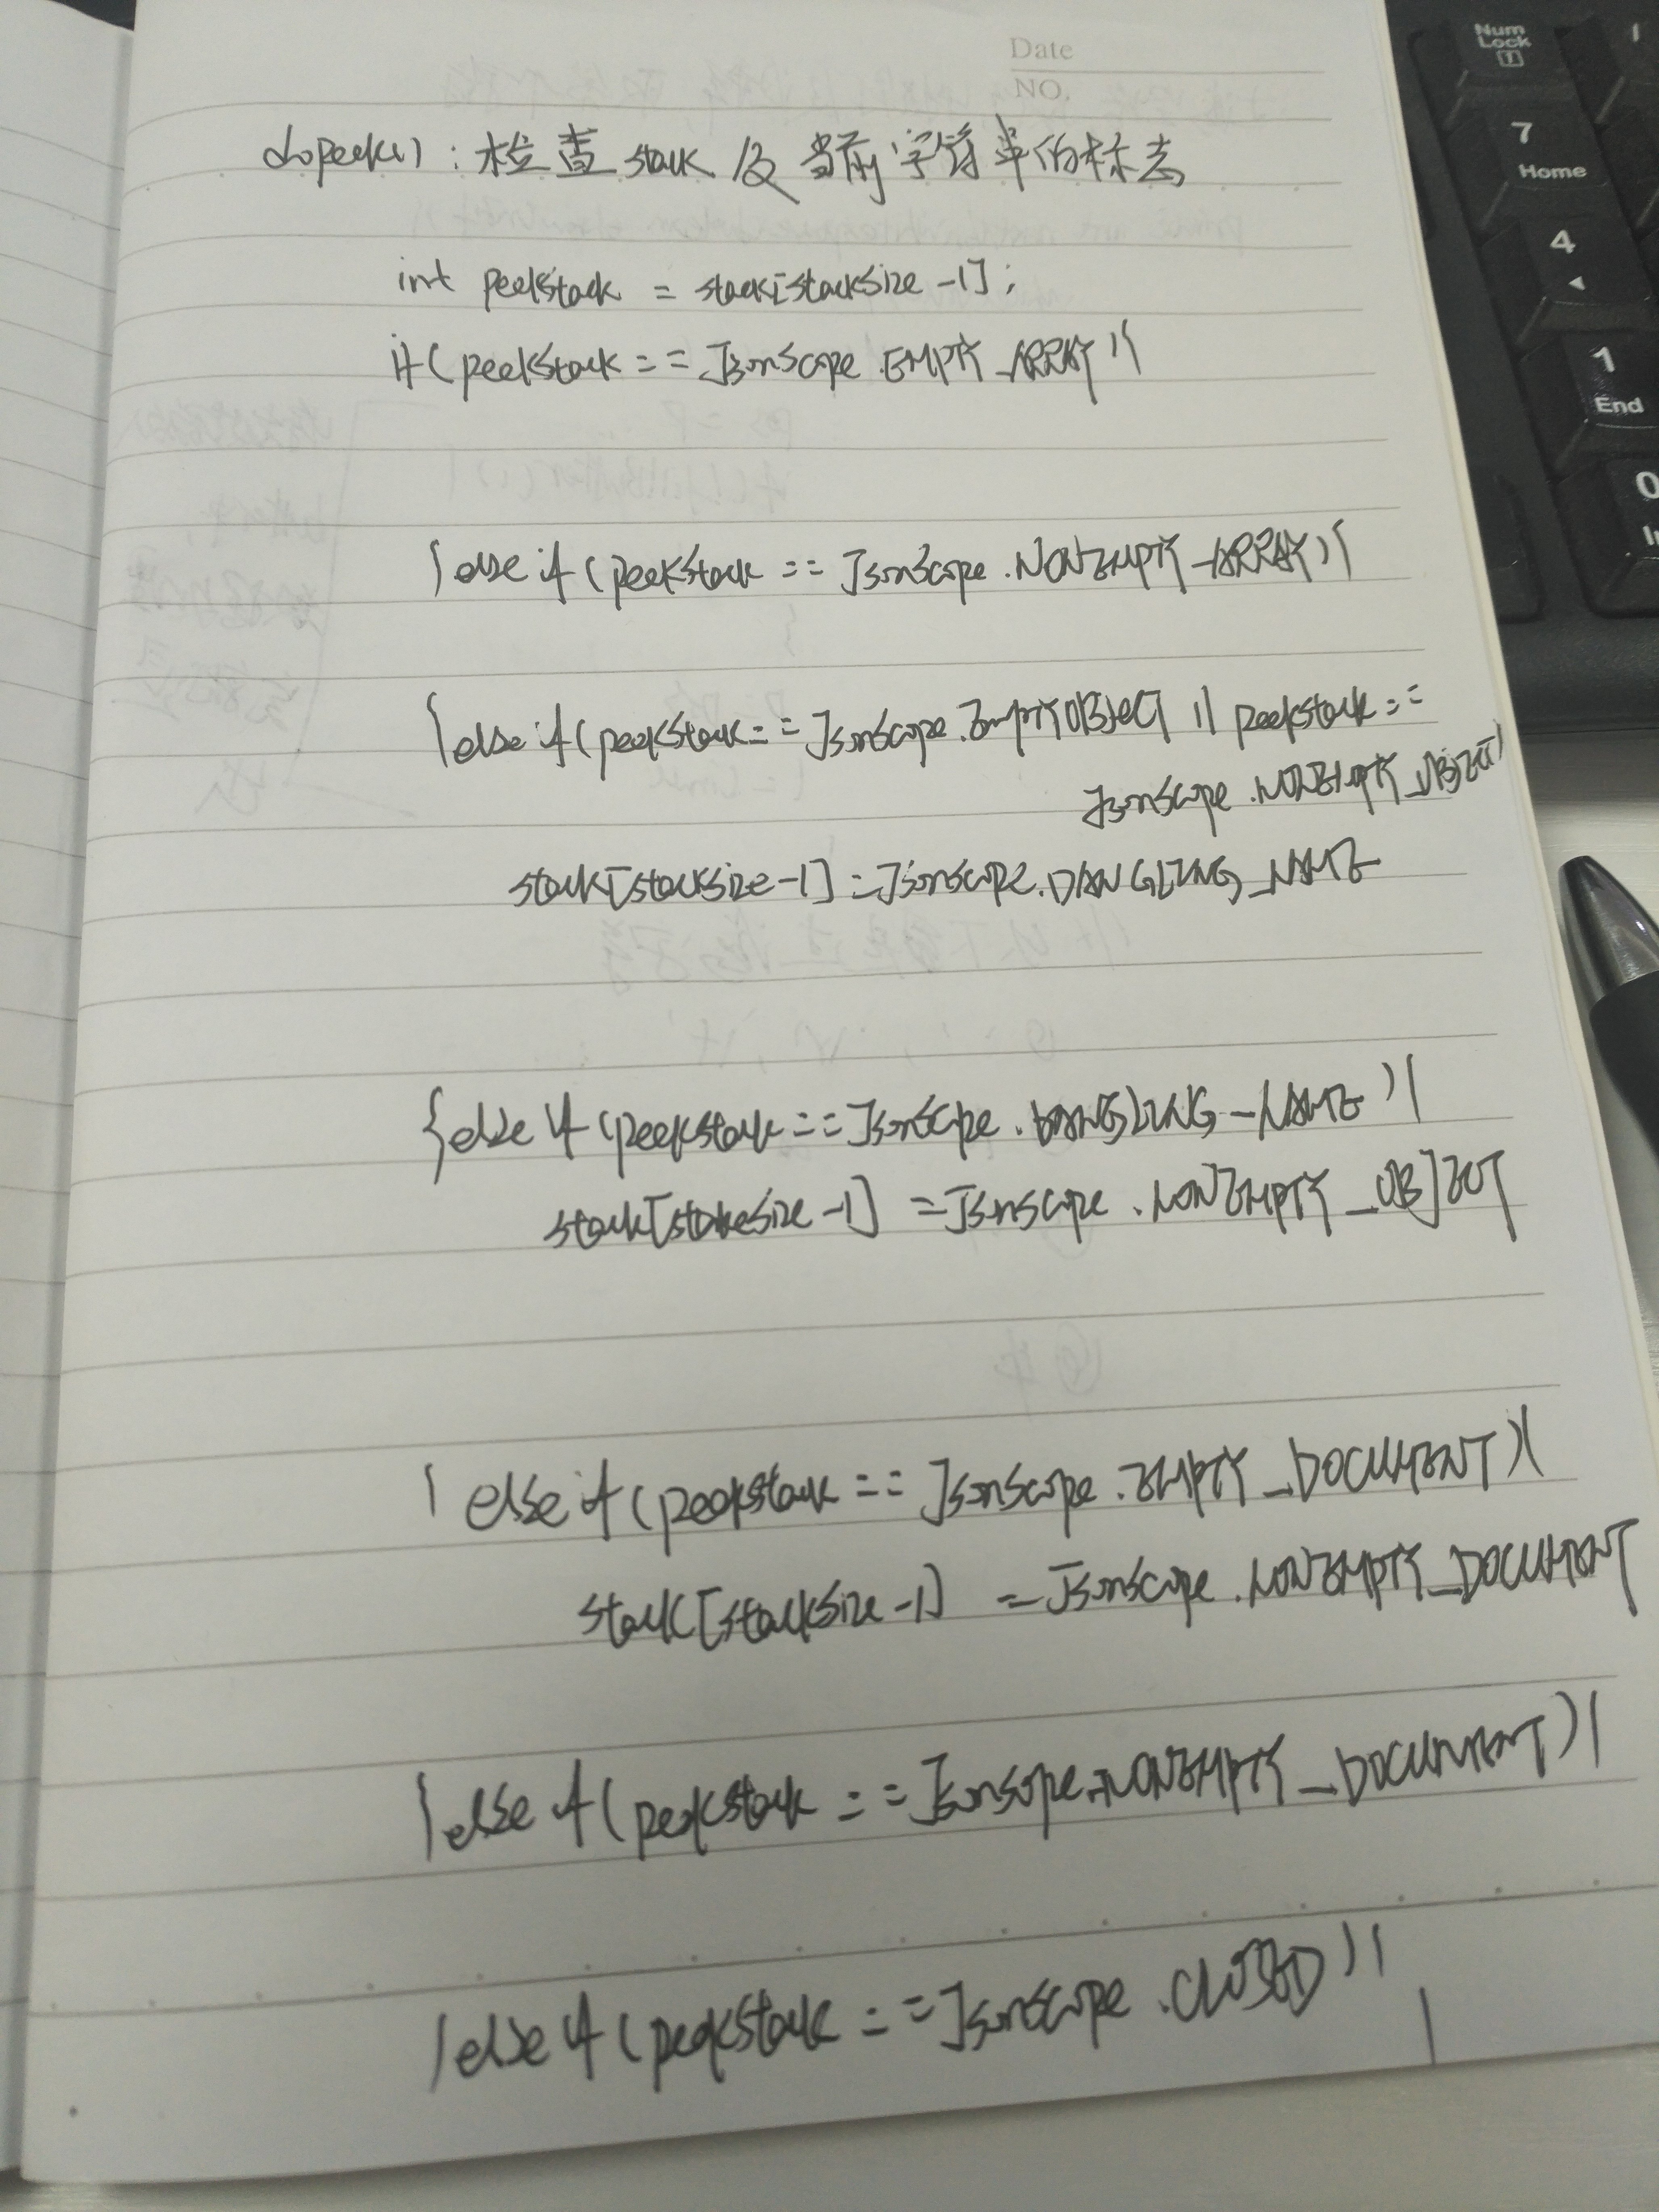 Date
NO.
doPeek() : 检查 stack 及 当前字符串的标志
int peekStack = stack[stackSize -1];
if (peekStack == JsonScope.EMPTY_ARRAY){
}else if (peekStack == JsonScope.NONEMPTY_ARRAY){
}else if (peekStack == JsonScope.EmPTYOBJECT || peekstack ==
JsonScope.NONEMPTY_OBJECT)
stack[stackSize-1] = JsonScope.DANGLING_NAME
}else if (peekstack == JsonScope.DANGLING_NAME){
stack[stakeSize-1] = JsonScope.NONEMPTY_OBJECT
}else if (peekstack == JsonScope.EMPTY_DOCUMENT){
stack[stackSize-1] = JsonScope.NONEMPTY_DOCUMENT
}else if (peekstack == JsonScope.NONEMPTY_DOCUMENT){
}else if (peekstack == JsonScope.CLOSED){
}
Num
Lock
7
Home
4
1
End
0